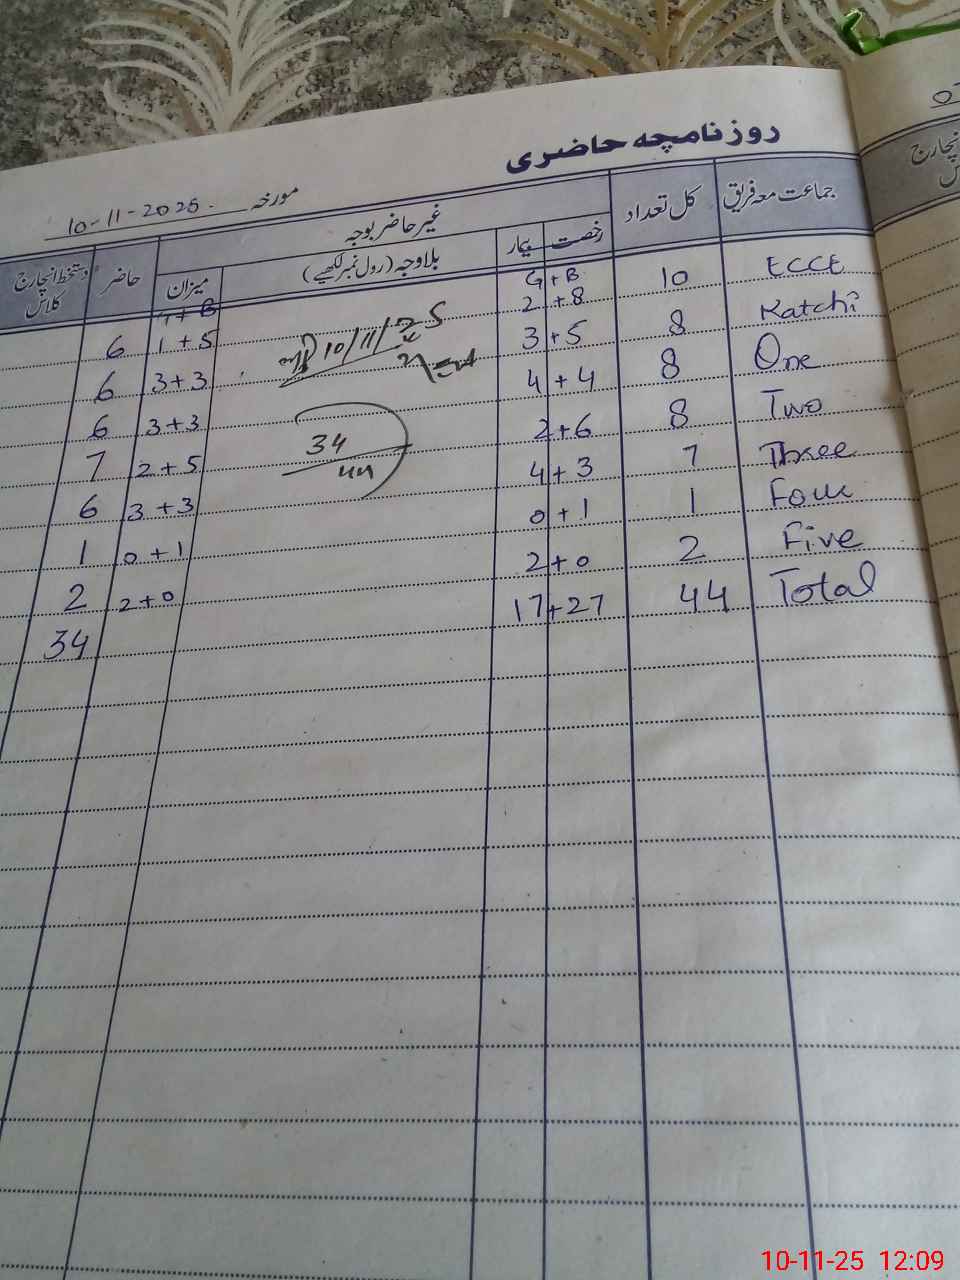 روزنامچہ حاضری
مورخہ 10-11-2025.
جماعت معہ فریق کل تعداد غیر حاضر بوجہ حاضر دستخط انچارج کلاس
رخصت بیمار بلاوجہ (رول نمبر لکھیے) میزان
G + B G + B
ECCE 10 2 + 8 1 + 5 6
Katchi 8 3 + 5 3 + 3 6
One 8 4 + 4 3 + 3 6
Two 8 2 + 6 2 + 5 7
Three 7 4 + 3 3 + 3 6
Four 1 0 + 1 0 + 1 1
Five 2 2 + 0 2 + 0 2
Total 44 17 + 27 34
10/11/25
34
44
انچارج
10-11-25 12:09